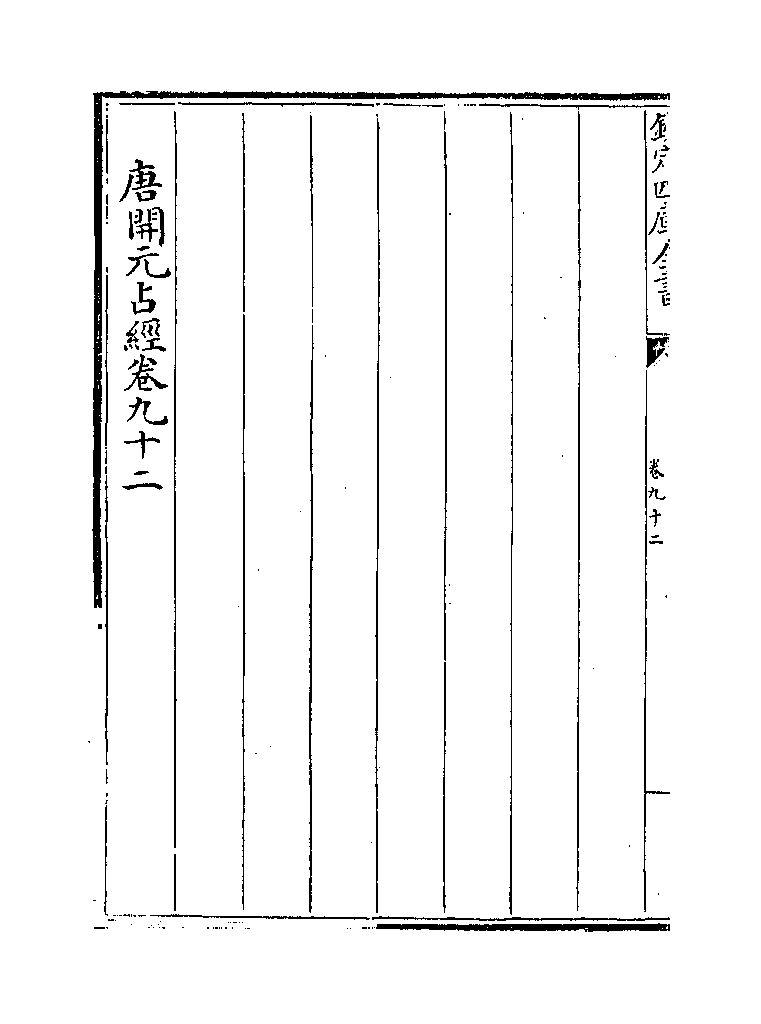 欽定四庫全書
卷九十二
唐開元占經卷九十二